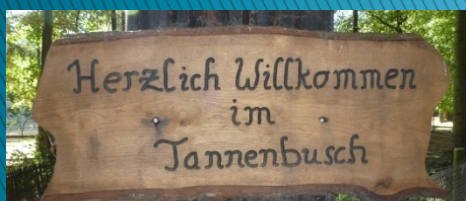 Herzlich Willkommen
im
Tannenbusch